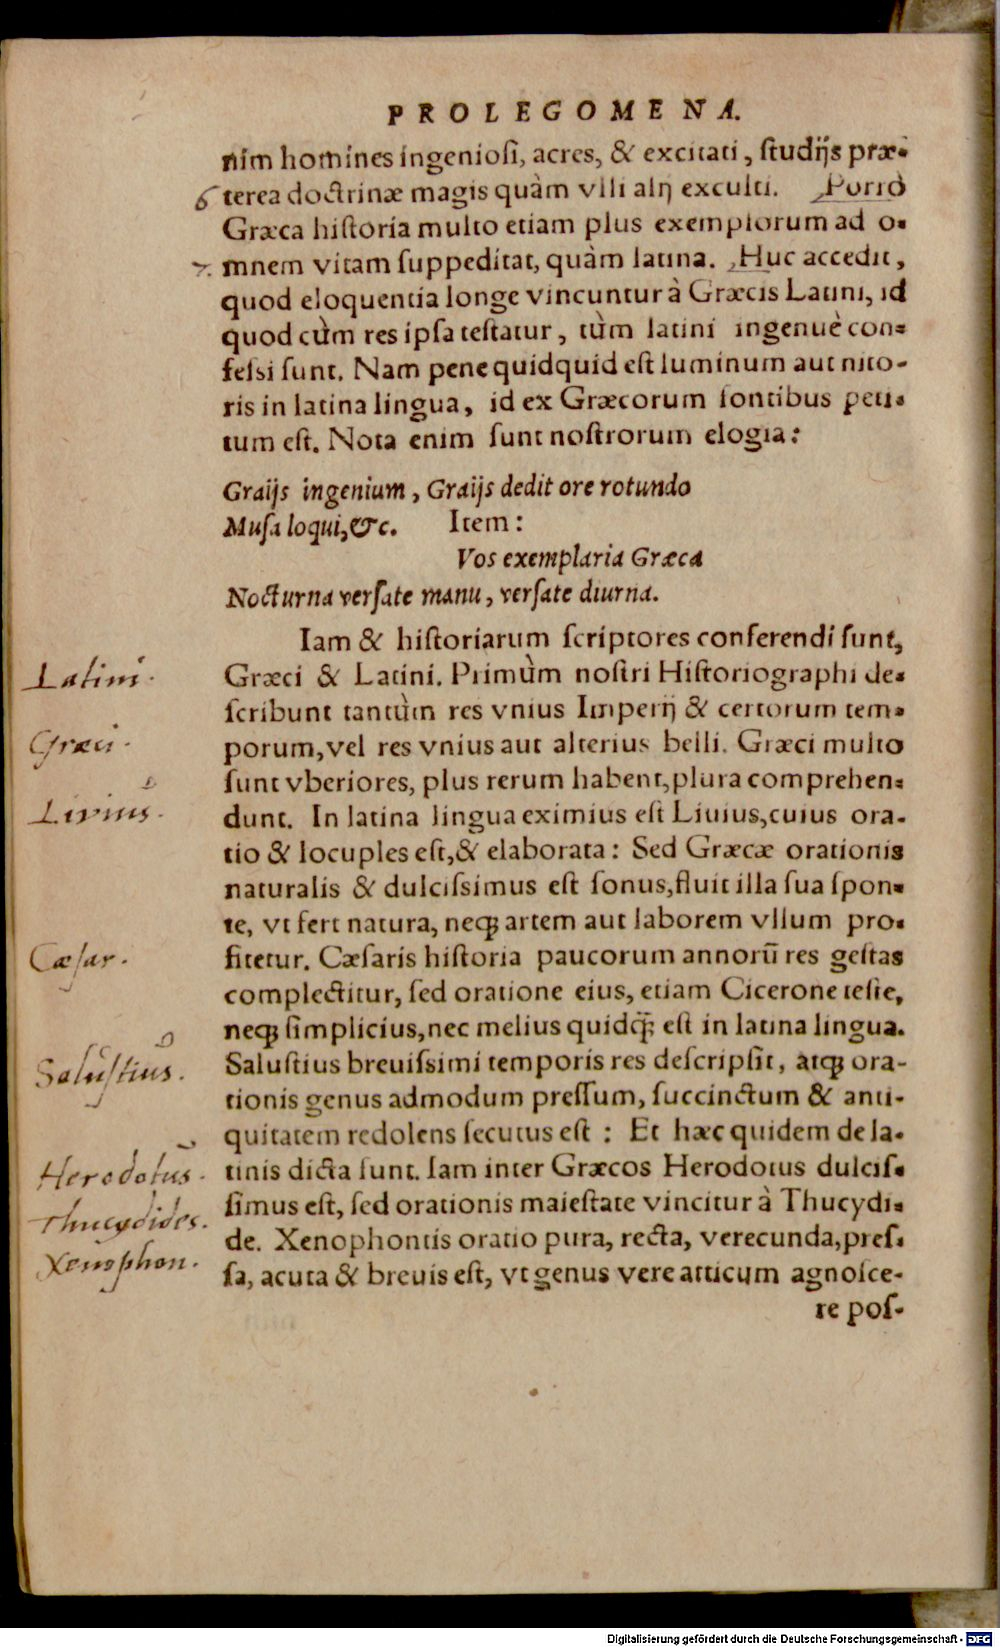 PROLEGOMENA.
nim homines ingeniosi, acres, & excitati, studijs præ-
6 terea doctrinæ magis quàm vlli alij exculti. Porrò
Græca historia multo etiam plus exemplorum ad o-
7. mnem vitam suppeditat, quàm latina. Huc accedit,
quod eloquentia longe vincuntur à Græcis Latini, id
quod cùm res ipsa testatur, tùm latini ingenuè con-
fessi sunt. Nam pene quidquid est luminum aut nito-
ris in latina lingua, id ex Græcorum fontibus peti-
tum est. Nota enim sunt nostrorum elogia:
Graijs ingenium, Graijs dedit ore rotundo
Musa loqui, &c. Item:
Vos exemplaria Græca
Nocturna versate manu, versate diurna.
Iam & historiarum scriptores conferendi sunt,
Latini. Græci & Latini. Primùm nostri Historiographi de-
scribunt tantùm res vnius Imperij & certorum tem-
Græci. porum, vel res vnius aut alterius belli. Græci multo
sunt vberiores, plus rerum habent, plura comprehen-
Livius. dunt. In latina lingua eximius est Liuius, cuius ora-
tio & locuples est, & elaborata: Sed Græcæ orationis
naturalis & dulcissimus est sonus, fluit illa sua spon-
te, vt fert natura, neq́ artem aut laborem vllum pro-
Cæsar. fitetur. Cæsaris historia paucorum annorū res gestas
complectitur, sed oratione eius, etiam Cicerone teste,
neq́ simplicius, nec melius quidq̃ est in latina lingua.
Salustius. Salustius breuissimi temporis res descripsit, atq́ ora-
tionis genus admodum pressum, succinctum & anti-
quitatem redolens secutus est: Et hæc quidem de la-
Herodotus. tinis dicta sunt. Iam inter Græcos Herodotus dulcis-
Thucydides. simus est, sed orationis maiestate vincitur à Thucydi-
Xenophon. de. Xenophontis oratio pura, recta, verecunda, pres-
sa, acuta & breuis est, vt genus vere atticum agnosce-
re pos-
Digitalisierung gefördert durch die Deutsche Forschungsgemeinschaft - DFG